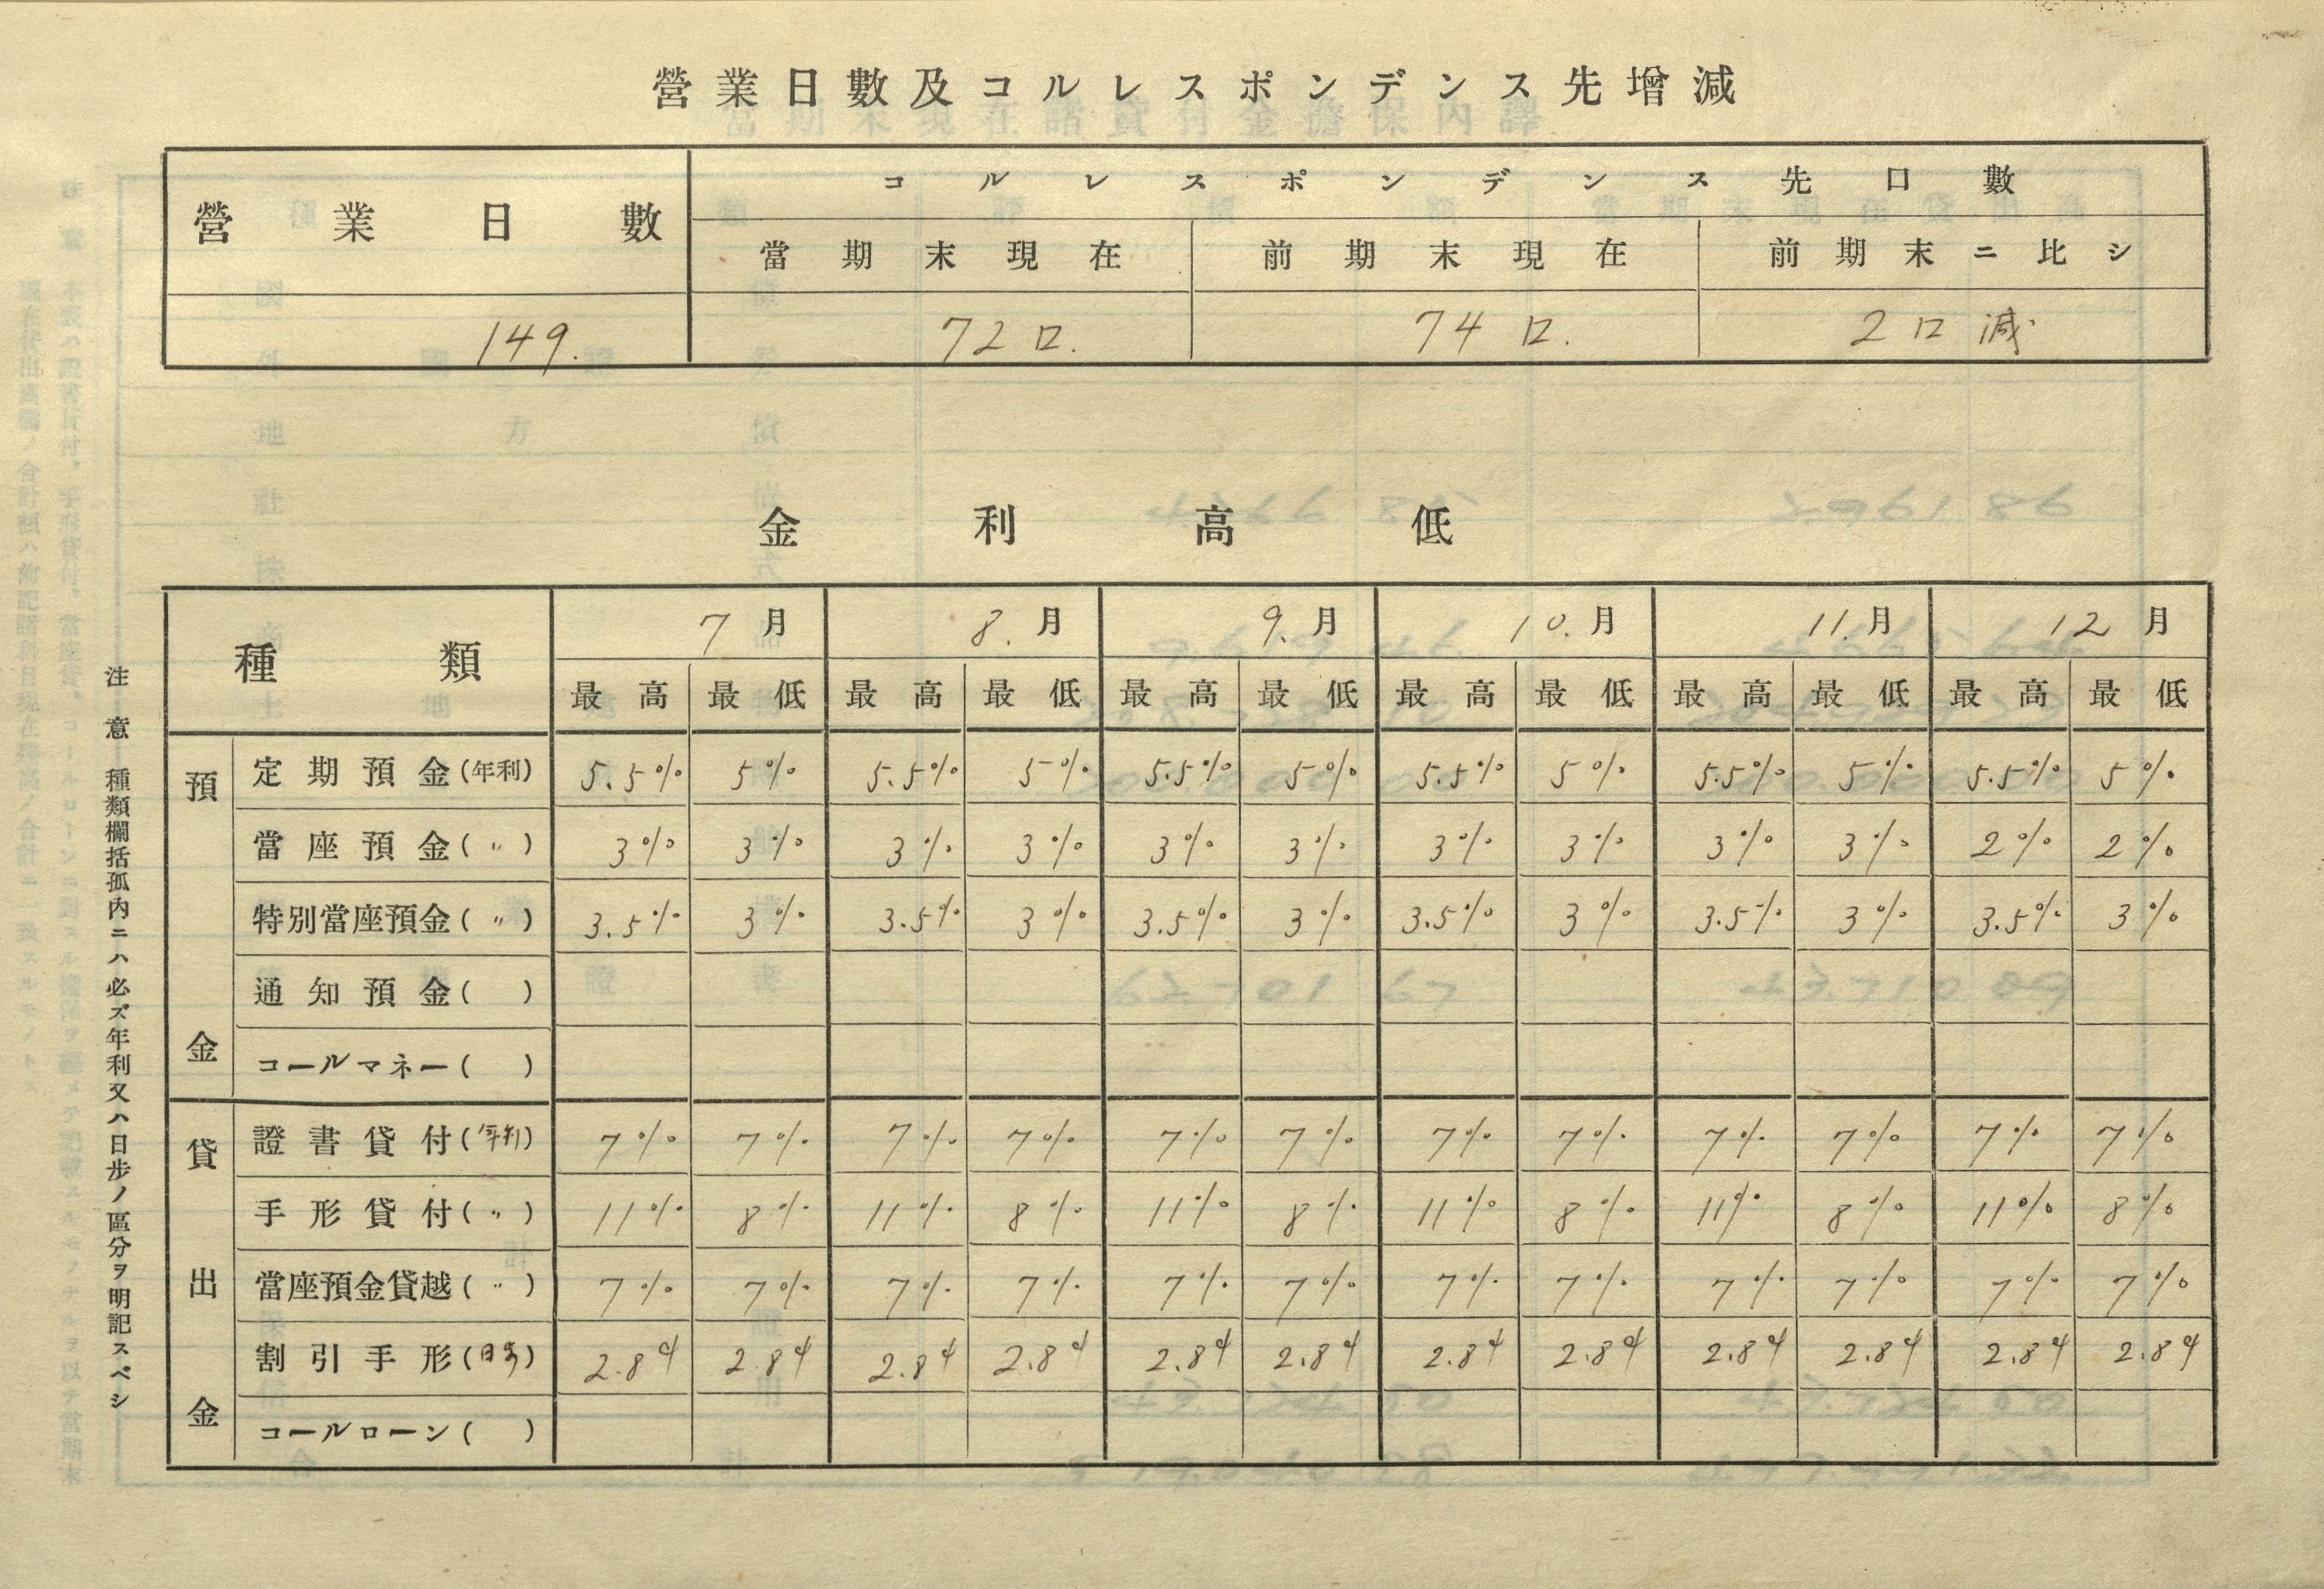 營業日數及コルレスポンデンス先增減
營業日數 コルレスポンデンス先口數
當期末現在 前期末現在 前期末ニ比シ
149. 72口. 74口. 2口減
金利高低
種類 7月 8.月 9.月 10.月 11.月 12月
最高 最低 最高 最低 最高 最低 最高 最低 最高 最低 最高 最低
預金
定期預金(年利) 5.5% 5% 5.5% 5% 5.5% 5% 5.5% 5% 5.5% 5% 5.5% 5%
當座預金(〃) 3% 3% 3% 3% 3% 3% 3% 3% 3% 3% 2% 2%
特別當座預金(〃) 3.5% 3% 3.5% 3% 3.5% 3% 3.5% 3% 3.5% 3% 3.5% 3%
通知預金( )
コールマネー( )
貸出金
證書貸付(年利) 7% 7% 7% 7% 7% 7% 7% 7% 7% 7% 7% 7%
手形貸付(〃) 11% 8% 11% 8% 11% 8% 11% 8% 11% 8% 11% 8%
當座預金貸越(〃) 7% 7% 7% 7% 7% 7% 7% 7% 7% 7% 7% 7%
割引手形(日歩) 2.8 2.8 2.8 2.8 2.8 2.8 2.8 2.8 2.8 2.8 2.8 2.8
コールローン( )
注意 種類欄括孤內ニハ必ズ年利又ハ日步ノ區分ヲ明記スベシ